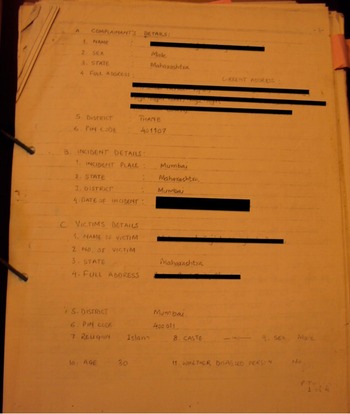 A. COMPLAINANT'S DETAILS:
1. NAME :
2. SEX : Male
3. STATE : Maharashtra
4. FULL ADDRESS : CURRENT ADDRESS
5. DISTRICT : THANE
6. PIN CODE : 401107
B. INCIDENT DETAILS:
1. INCIDENT PLACE : Mumbai
2. STATE : Maharashtra
3. DISTRICT : Mumbai
4. DATE OF INCIDENT :
C. VICTIMS DETAILS
1. NAME OF VICTIM
2. NO. OF VICTIM
3. STATE : Maharashtra
4. FULL ADDRESS
5. DISTRICT MUMBAI
6. PIN CODE
7. Religion Islam 8. CASTE 9. SEX MALE
10. AGE 50 11. WHETHER DISABLED NO